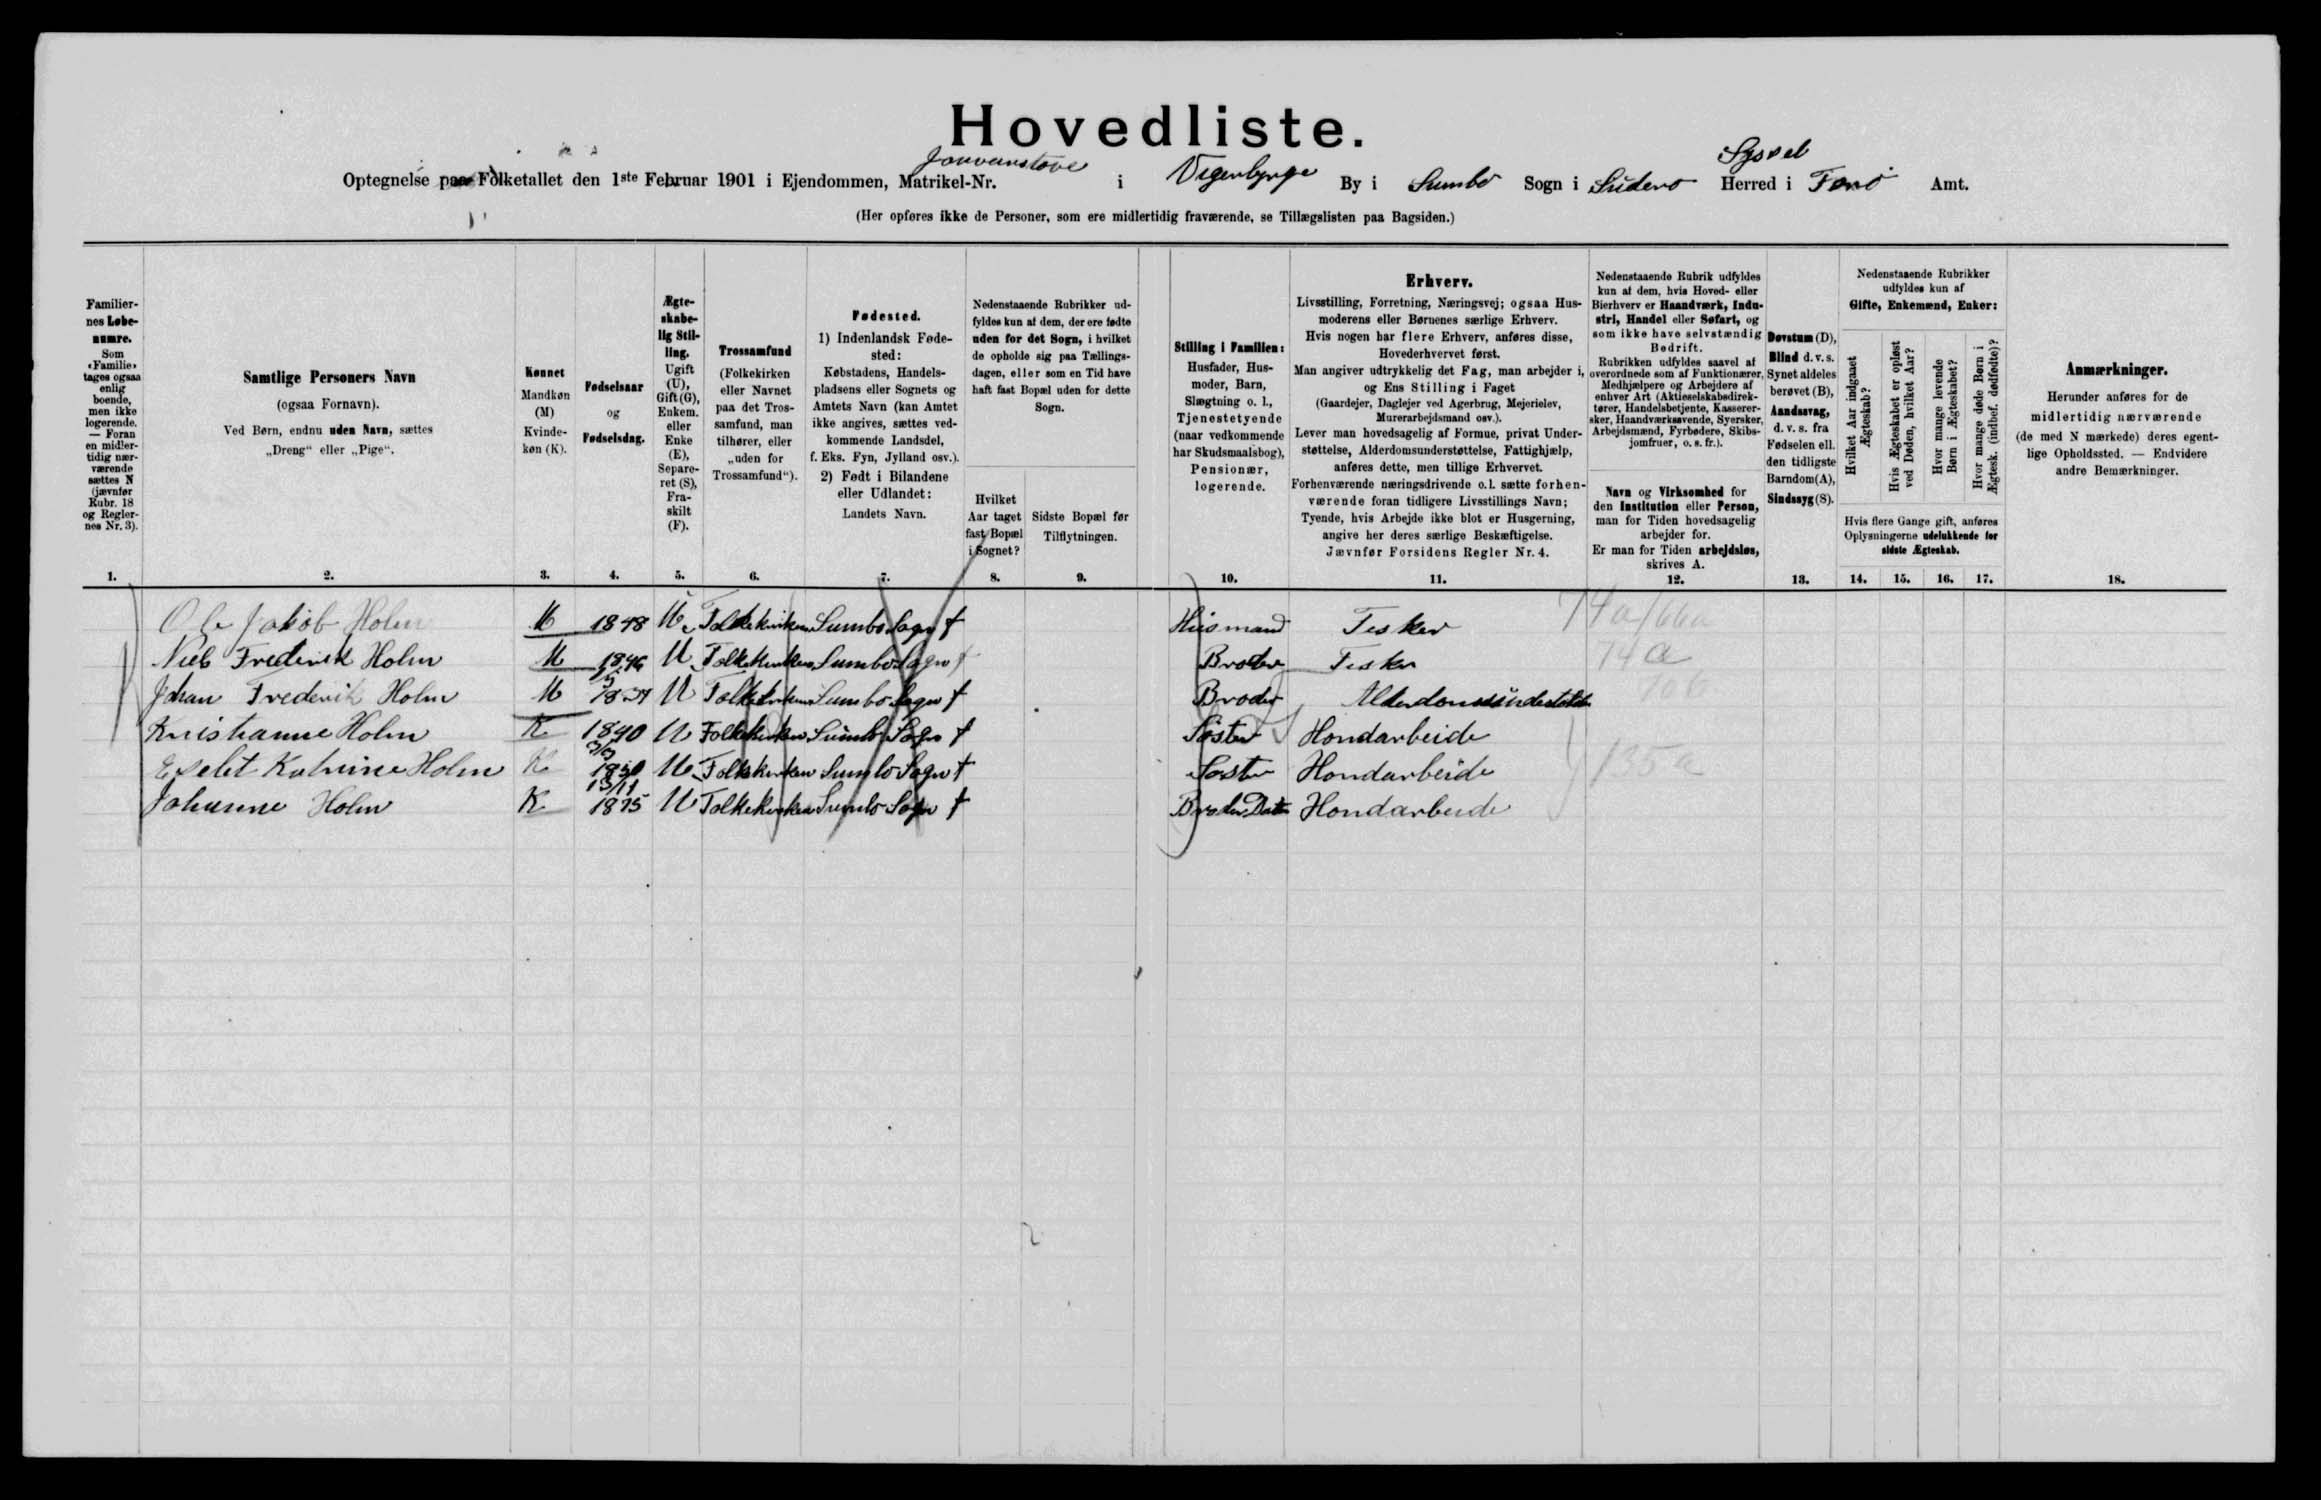 Hovedliste.
Optegnelse paa Folketallet den 1ste Februar 1901 i Ejendommen, Matrikel-Nr. i Vigerbyrge By i Sumbø Sogn i Suderø Herred Syssel i Færø Amt.
(Her opføres ikke de Personer, som ere midlertidig fraværende, se Tillægslisten paa Bagsiden.)
Familier-
nes Løbe-
numre.
Som
«Familie»
tages ogsaa
enlig
boende,
men ikke
logerende.
— Foran
en midler-
tidig nær-
værende
sættes N
(jævnfør
Rubr. 18
og Regler-
nes Nr. 3).
1.
Samtlige Personers Navn
(ogsaa Fornavn).
Ved Børn, endnu uden Navn, sættes
„Dreng“ eller „Pige“.
2.
Kønnet
Mandkøn
(M)
Kvinde-
køn (K).
3.
Fødselsaar
og
Fødselsdag.
4.
Ægte-
skabe-
lig Stil-
ling.
Ugift
(U),
Gift (G),
Enkem.
eller
Enke
(E),
Separe-
ret (S),
Fra-
skilt
(F).
5.
Trossamfund
(Folkekirken
eller Navnet
paa det Tros-
samfund, man
tilhører, eller
„uden for
Trossamfund“).
6.
Fødested.
1) Indenlandsk Føde-
sted:
Købstadens, Handels-
pladsens eller Sognets og
Amtets Navn (kan Amtet
ikke angives, sættes ved-
kommende Landsdel,
f. Eks. Fyn, Jylland osv.).
2) Født i Bilandene
eller Udlandet:
Landets Navn.
7.
Nedenstaaende Rubrikker ud-
fyldes kun af dem, der ere fødte
uden for det Sogn, i hvilket
de opholde sig paa Tællings-
dagen, eller som en Tid have
haft fast Bopæl uden for dette
Sogn.
Hvilket
Aar taget
fast Bopæl
i Sognet?
8.
Sidste Bopæl før
Tilflytningen.
9.
Stilling i Familien:
Husfader, Hus-
moder, Barn,
Slægtning o. l.,
Tjenestetyende
(naar vedkommende
har Skudsmaalsbog),
Pensionær,
logerende.
10.
Erhverv.
Livsstilling, Forretning, Næringsvej; ogsaa Hus-
moderens eller Børnenes særlige Erhverv.
Hvis nogen har flere Erhverv, anføres disse,
Hovederhvervet først.
Man angiver udtrykkelig det Fag, man arbejder i,
og Ens Stilling i Faget
(Gaardejer, Daglejer ved Agerbrug, Mejerielev,
Murerarbejdsmand osv.).
Lever man hovedsagelig af Formue, privat Under-
støttelse, Alderdomsunderstøttelse, Fattighjælp,
anføres dette, men tillige Erhvervet.
Forhenværende næringsdrivende o. l. sætte forhen-
værende foran tidligere Livsstillings Navn;
Tyende, hvis Arbejde ikke blot er Husgerning,
angive her deres særlige Beskæftigelse.
Jævnfør Forsidens Regler Nr. 4.
11.
Nedenstaaende Rubrik udfyldes
kun af dem, hvis Hoved- eller
Bierhverv er Haandværk, Indu-
stri, Handel eller Søfart, og
som ikke have selvstændig
Bedrift.
Rubrikken udfyldes saavel af
overordnede som af Funktionærer,
Medhjælpere og Arbejdere af
enhver Art (Aktieselskabsdirek-
tører, Handelsbetjente, Kasserer-
sker, Haandværkssvende, Syersker,
Arbejdsmænd, Fyrbødere, Skibs-
jomfruer, o. s. fr.).
Navn og Virksomhed for
den Institution eller Person,
man for Tiden hovedsagelig
arbejder for.
Er man for Tiden arbejdsløs,
skrives A.
12.
Døvstum (D),
Blind d. v. s.
Synet aldeles
berøvet (B),
Aandssvag,
d. v. s. fra
Fødselen ell.
den tidligste
Barndom (A),
Sindssyg (S).
13.
Nedenstaaende Rubrikker
udfyldes kun af
Gifte, Enkemænd, Enker:
Hvilket Aar indgaaet
Ægteskab?
Hvis Ægteskabet er opløst
ved Døden, hvilket Aar?
Hvor mange levende
Børn i Ægteskabet?
Hvor mange døde Børn i
Ægtesk. (indbef. dødfødte)?
Hvis flere Gange gift, anføres
Oplysningerne udelukkende for
sidste Ægteskab.
14. 15. 16. 17.
Anmærkninger.
Herunder anføres for de
midlertidig nærværende
(de med N mærkede) deres egent-
lige Opholdssted. — Endvidere
andre Bemærkninger.
18.
Ole Jakob Holm M 1848 U Folkekirken Sumbø Sogn Husmand Fisker 74a/66a
Niels Frederik Holm M U Folkekirken Sumbø Sogn Broder Fisker 74a
Johan Frederik Holm M U Folkekirken Sumbø Sogn Broder
Kristianne Holm K 1840 U Folkekirken Sumbø Sogn Søster Hondarbeide
Katrine Holm K 1850 U Folkekirken Sumbø Sogn Søster Hondarbeide 135a
Johanne Holm K 13/11 1875 U Folkekirken Sumbø Sogn Broder Datter Hondarbeide